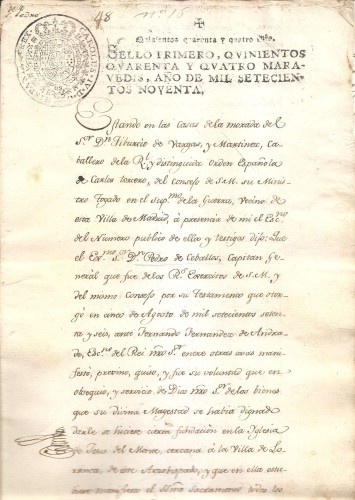 48
Quinientos quarenta y quatro mrs.
SELLO PRIMERO, QVINIENTOS
QVARENTA Y QVATRO MARA-
VEDIS, AÑO DE MIL SETECIEN-
TOS NOVENTA,
Estando en las casas de la morada del
Sor. Dn. Tiburcio de Vargas y Martinez, Ca-
ballero de la Rl. y distinguida orden Española
de Carlos tercero, del Consejo de S.M. su Minis-
tro Togado en el Supmo. de la Guerra, Vecino de
esta Villa de Madrid, á presencia de mi el Escno.
del Numero publico de ella y testigos dijo: Que
el Exmo. Sor. Dn. Pedro de Ceballos, Capitan Ge-
neral que fue de los Rs. Exercitos de S.M. y
del mismo Consejo por su testamento que otor-
gó en once de Agosto de mil setecientos seten-
ta y seis, ante Fernando Fernandez de Andra-
de, Escno. del Rei nro. Sr. entre otras cosas mani-
festó, previno, quiso, y fue su voluntad que en
obsequio, y servicio de Dios nro. Sr. de los bienes
que su divina Magestad se habia dignado
darle se hiciese cierta fundacion en la Iglesia
de Jesus del Monte, cercana á la Villa de Lo-
ranca, de este Arzobispado, y que en ella estu-
biese manifiesto el Ssmo. Sacramento todos los